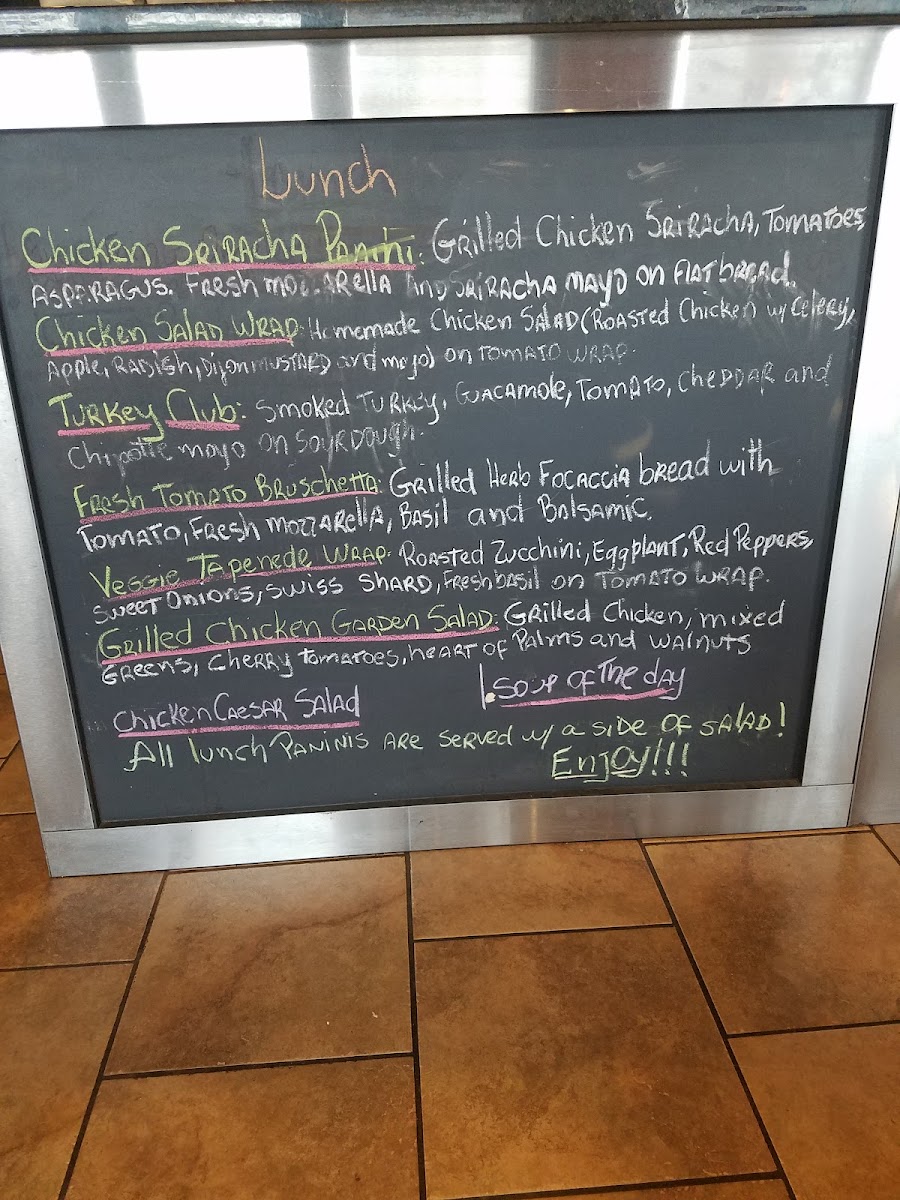 Lunch
Chicken Sriracha Panini: Grilled Chicken Sriracha, Tomatoes,
Asparagus. Fresh mozzarella and Sriracha mayo on Flatbread.
Chicken Salad Wrap: Homemade Chicken Salad (Roasted Chicken w/ Celery,
Apple, Radish, Dijon mustard and mayo) on tomato wrap.
Turkey Club: Smoked Turkey, Guacamole, Tomato, Cheddar and
Chipotle mayo on Sourdough.
Fresh Tomato Bruschetta: Grilled Herb Focaccia bread with
Tomato, Fresh Mozzarella, Basil and Balsamic.
Veggie Tapenede Wrap: Roasted Zucchini, Eggplant, Red Peppers,
Sweet Onions, Swiss Shard, Fresh basil on Tomato Wrap.
Grilled Chicken Garden Salad: Grilled Chicken, mixed
Greens, Cherry tomatoes, heart of Palms and walnuts
Chicken Caesar Salad
Soup of the day
All lunch Paninis are served w/ a side of salad!
Enjoy!!!